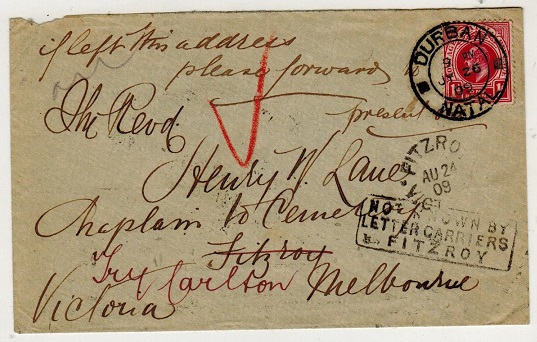 if left this address
please forward to
present
The Revd
Henry W. Lane
Chaplain to Cemetery
Fitzroy
Try Carlton Melbourne
Victoria
DURBAN
26
09
NATAL
FITZROY
AU 24
09
VICT
NOT KNOWN BY
LETTER CARRIERS
FITZROY